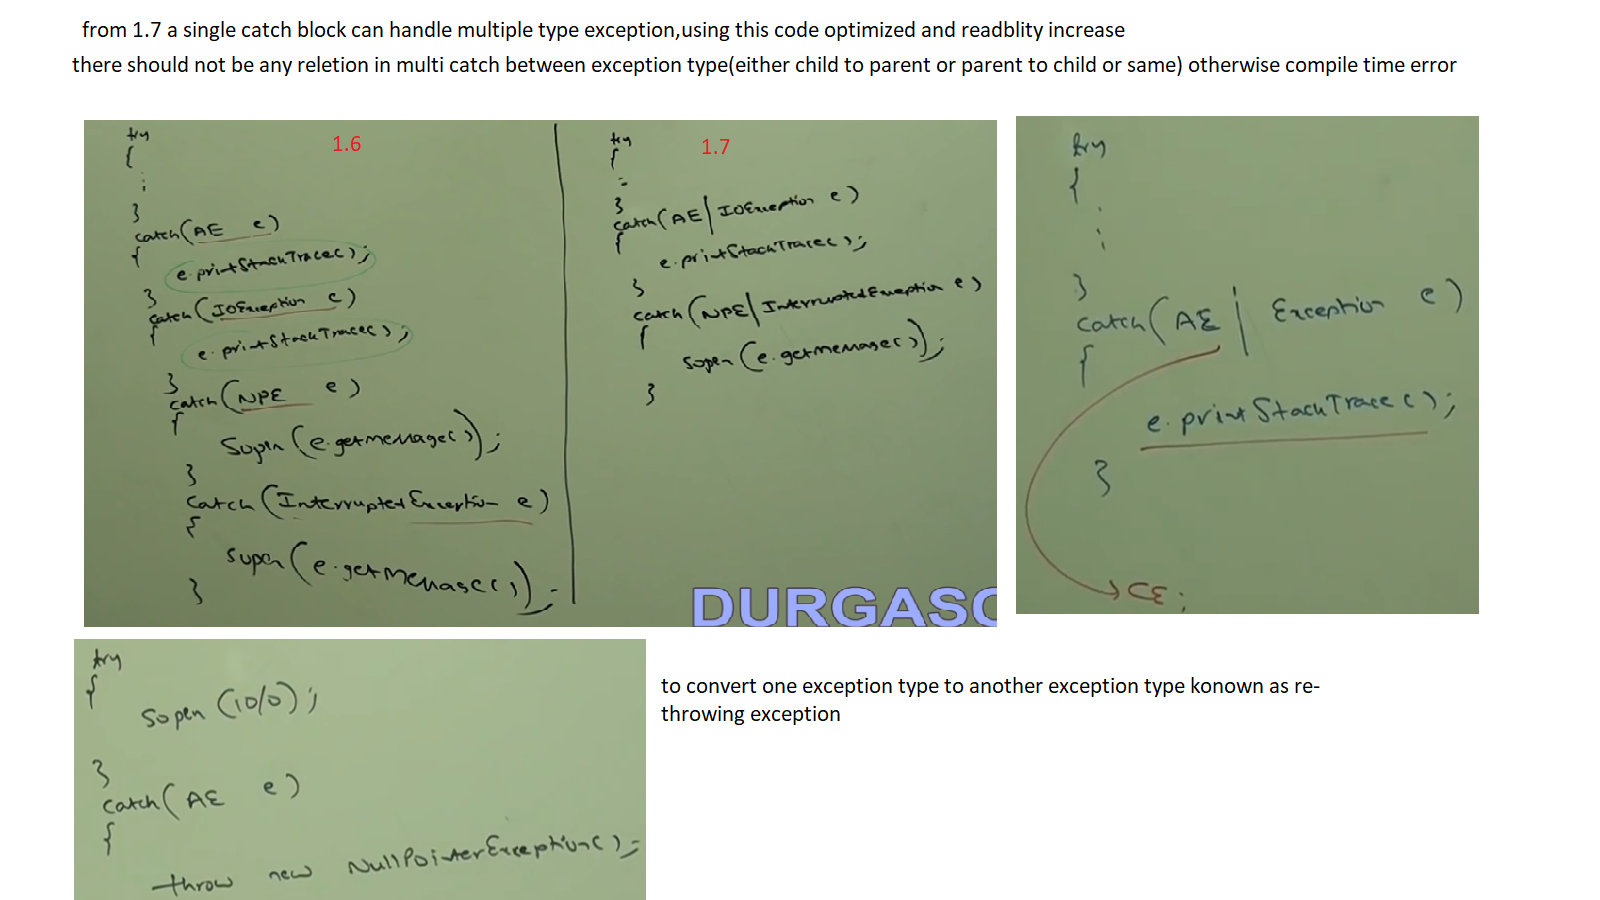 from 1.7 a single catch block can handle multiple type exception,using this code optimized and readblity increase
there should not be any reletion in multi catch between exception type(either child to parent or parent to child or same) otherwise compile time error
try
1.6
{
}
catch(AE e)
{
e.printStackTrace();
}
catch(IOException e)
{
e.printStackTrace();
}
catch(NPE e)
{
Sopln(e.getmessage());
}
catch(InterruptedException e)
{
Sopln(e.getMessage());
}
try
1.7
{
}
catch(AE|IOException e)
{
e.printStackTrace();
}
catch(NPE|InterruptedException e)
{
Sopln(e.getmessage());
}
DURGASO
try
{
}
catch(AE| Exception e)
{
e.printStackTrace();
}
CE:
try
{
Sopln(10/0);
}
catch(AE e)
{
throw new NullPointerException();
to convert one exception type to another exception type konown as re-
throwing exception